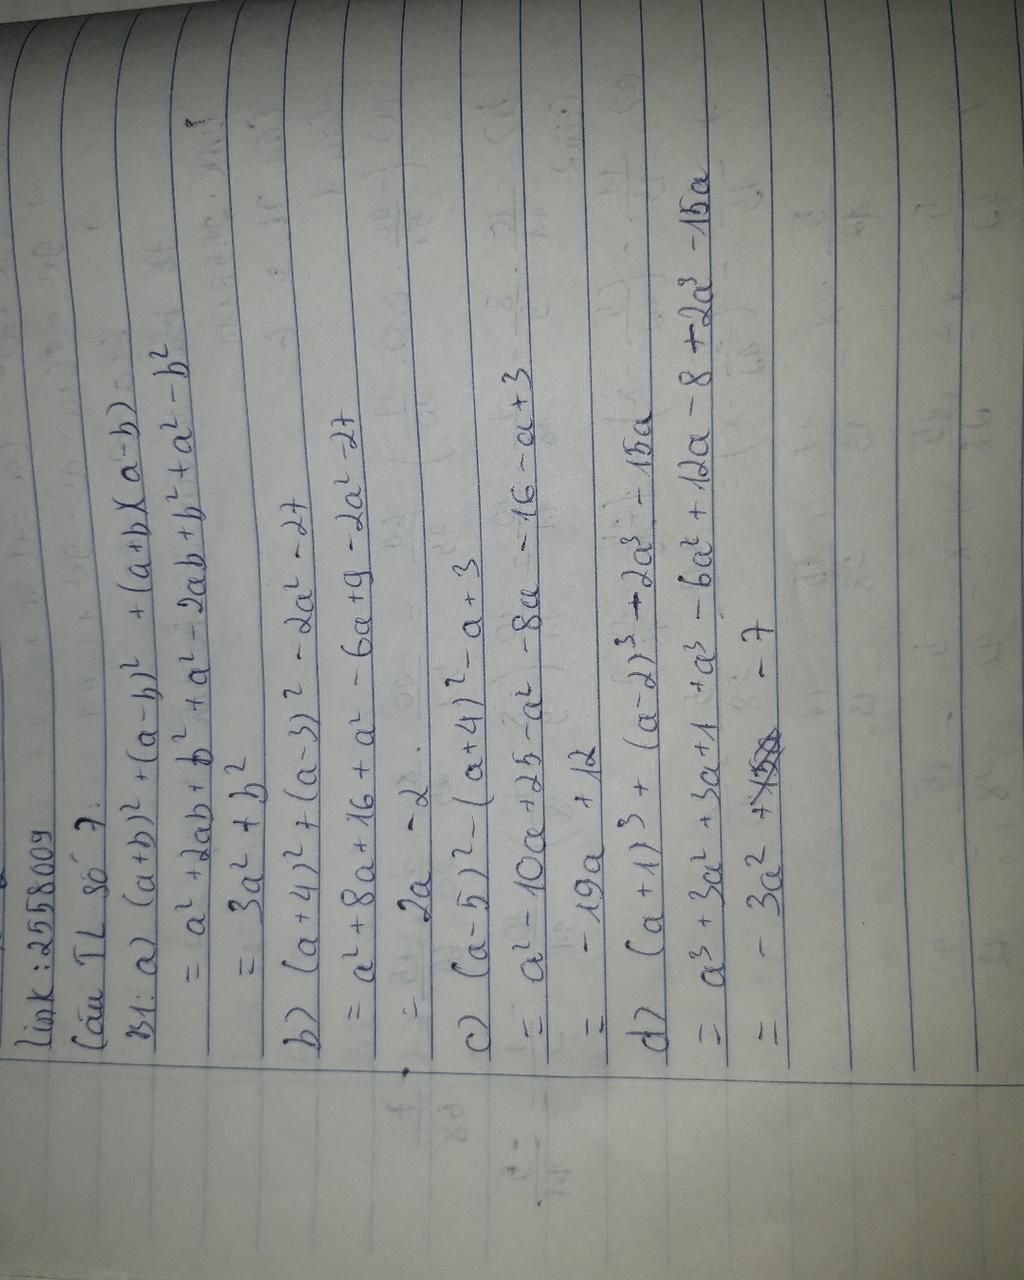 link : 2558009
Câu TL số 7:
B1: a) (a+b)² + (a-b)² + (a+b)(a-b)
= a² + 2ab + b² + a² - 2ab + b² + a² - b²
= 3a² + b²
b) (a+4)² + (a-3)² - 2a² - 27
= a² + 8a + 16 + a² - 6a + 9 - 2a² - 27
= 2a - 2
c) (a-5)² - (a+4)² - a + 3
= a² - 10a + 25 - a² - 8a - 16 - a + 3
= - 19a + 12
d) (a+1)³ + (a-2)³ - 2a³ - 15a
= a³ + 3a² + 3a + 1 + a³ - 6a² + 12a - 8 + 2a³ - 15a
= - 3a² - 7